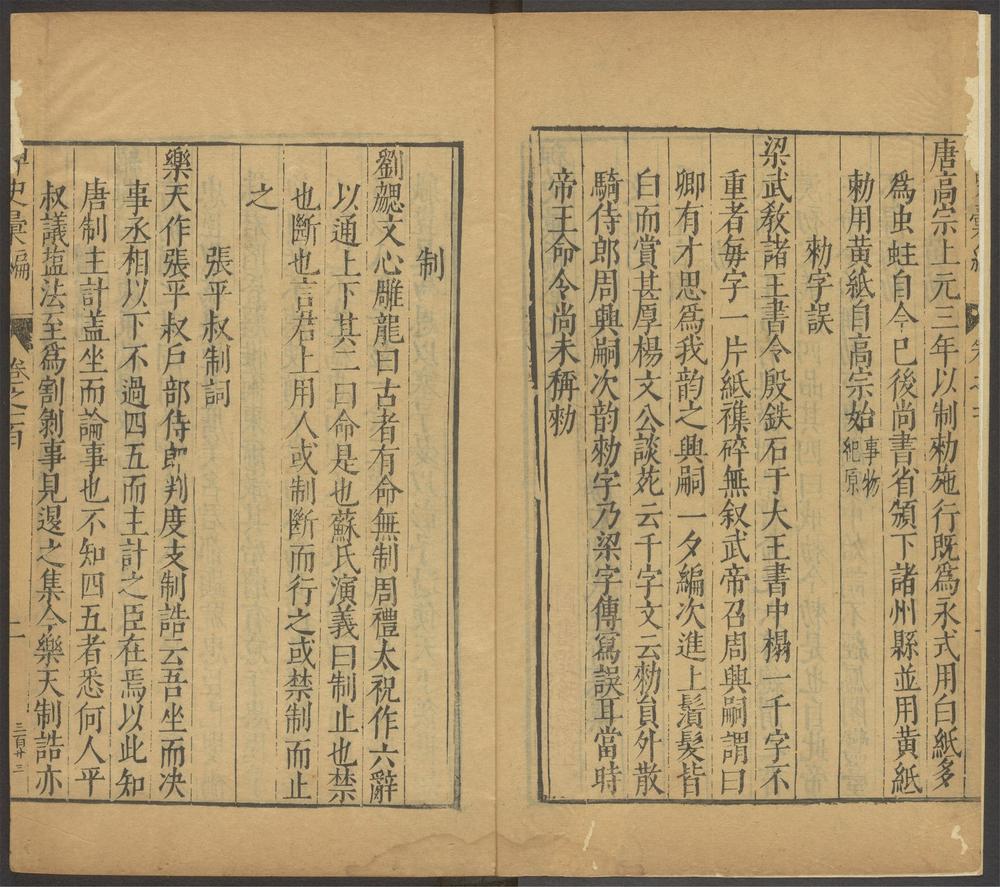 唐高宗上元三年以制勑施行既爲永式用白紙多
爲虫蛀自今已後尚書省頒下諸州縣並用黄紙
勑用黄紙自高宗始事物
紀原
勑字誤
梁武敎諸王書令殷鉄石于大王書中榻一千字不
重者毎字一片紙襍碎無叙武帝召周興嗣謂曰
卿有才思爲我韵之興嗣一夕編次進上鬚髮皆
白而賞甚厚楊文公談苑云千字文云勑員外散
騎侍郎周興嗣次韵勑字乃梁字傳寫誤耳當時
帝王命令尚未稱勑
制
劉勰文心雕龍曰古者有命無制周禮太祝作六辭
以通上下其二曰命是也蘇氏演義曰制止也禁
也斷也言君上用人或制斷而行之或禁制而止
之
張平叔制詞
樂天作張平叔戸部侍郎判度支制誥云吾坐而决
事丞相以下不過四五而主計之臣在焉以此知
唐制主計盖坐而論事也不知四五者悉何人平
叔議塩法至爲割剝事見退之集今樂天制誥亦
史彙編
卷之百
二
三百廿三